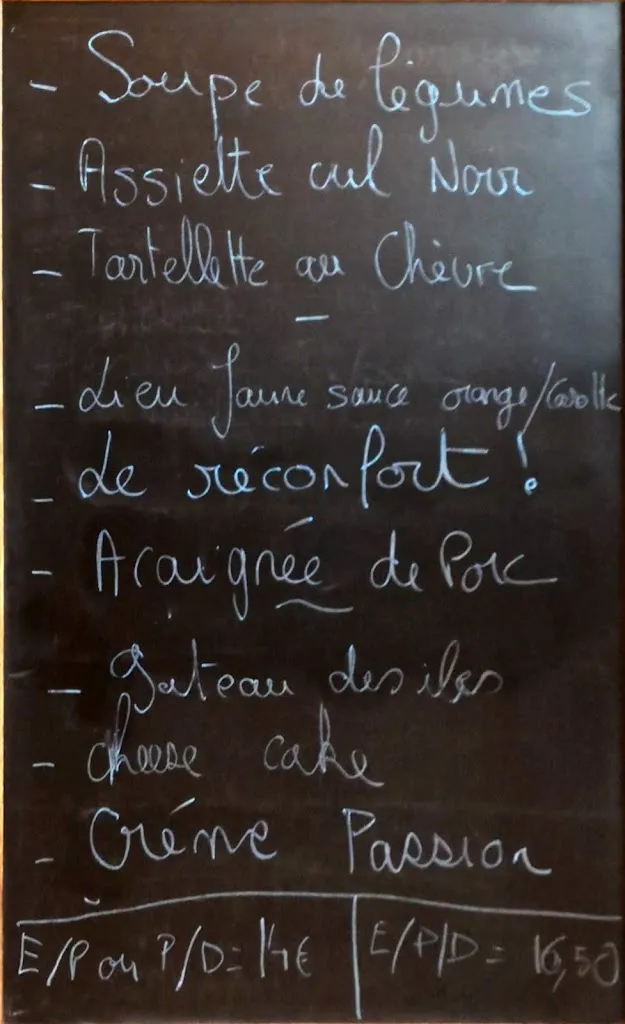 - Soupe de légumes
- Assiette cul Noir
- Tartellette au Chèvre
-
- Lieu Jaune sauce orange/Carotte
- Le réconfort !
- Araignée de Porc
- Gateau des iles
- cheese cake
- Créme Passion
E/P ou P/D = 14€
E/P/D = 16,50